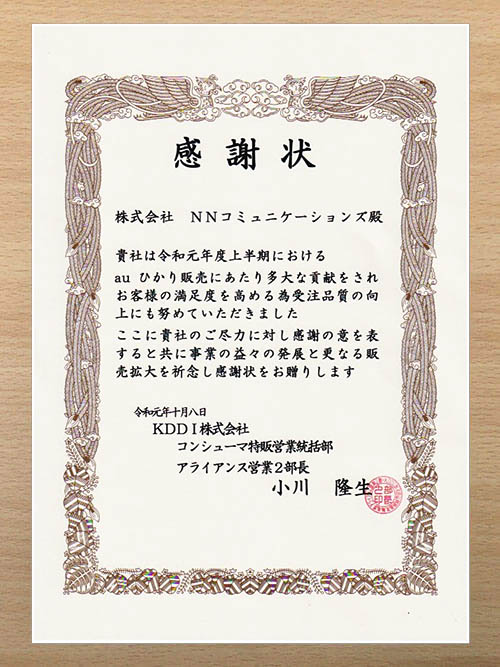 感謝状
株式会社 NNコミュニケーションズ殿
貴社は令和元年度上半期における
au ひかり販売にあたり多大な貢献をされ
お客様の満足度を高める為受注品質の向
上にも努めていただきました
ここに貴社のご尽力に対し感謝の意を表
すると共に事業の益々の発展と更なる販
売拡大を祈念し感謝状をお贈りします
令和元年十月八日
KDDI株式会社
コンシューマ特販営業統括部
アライアンス営業2部長
小川 隆生